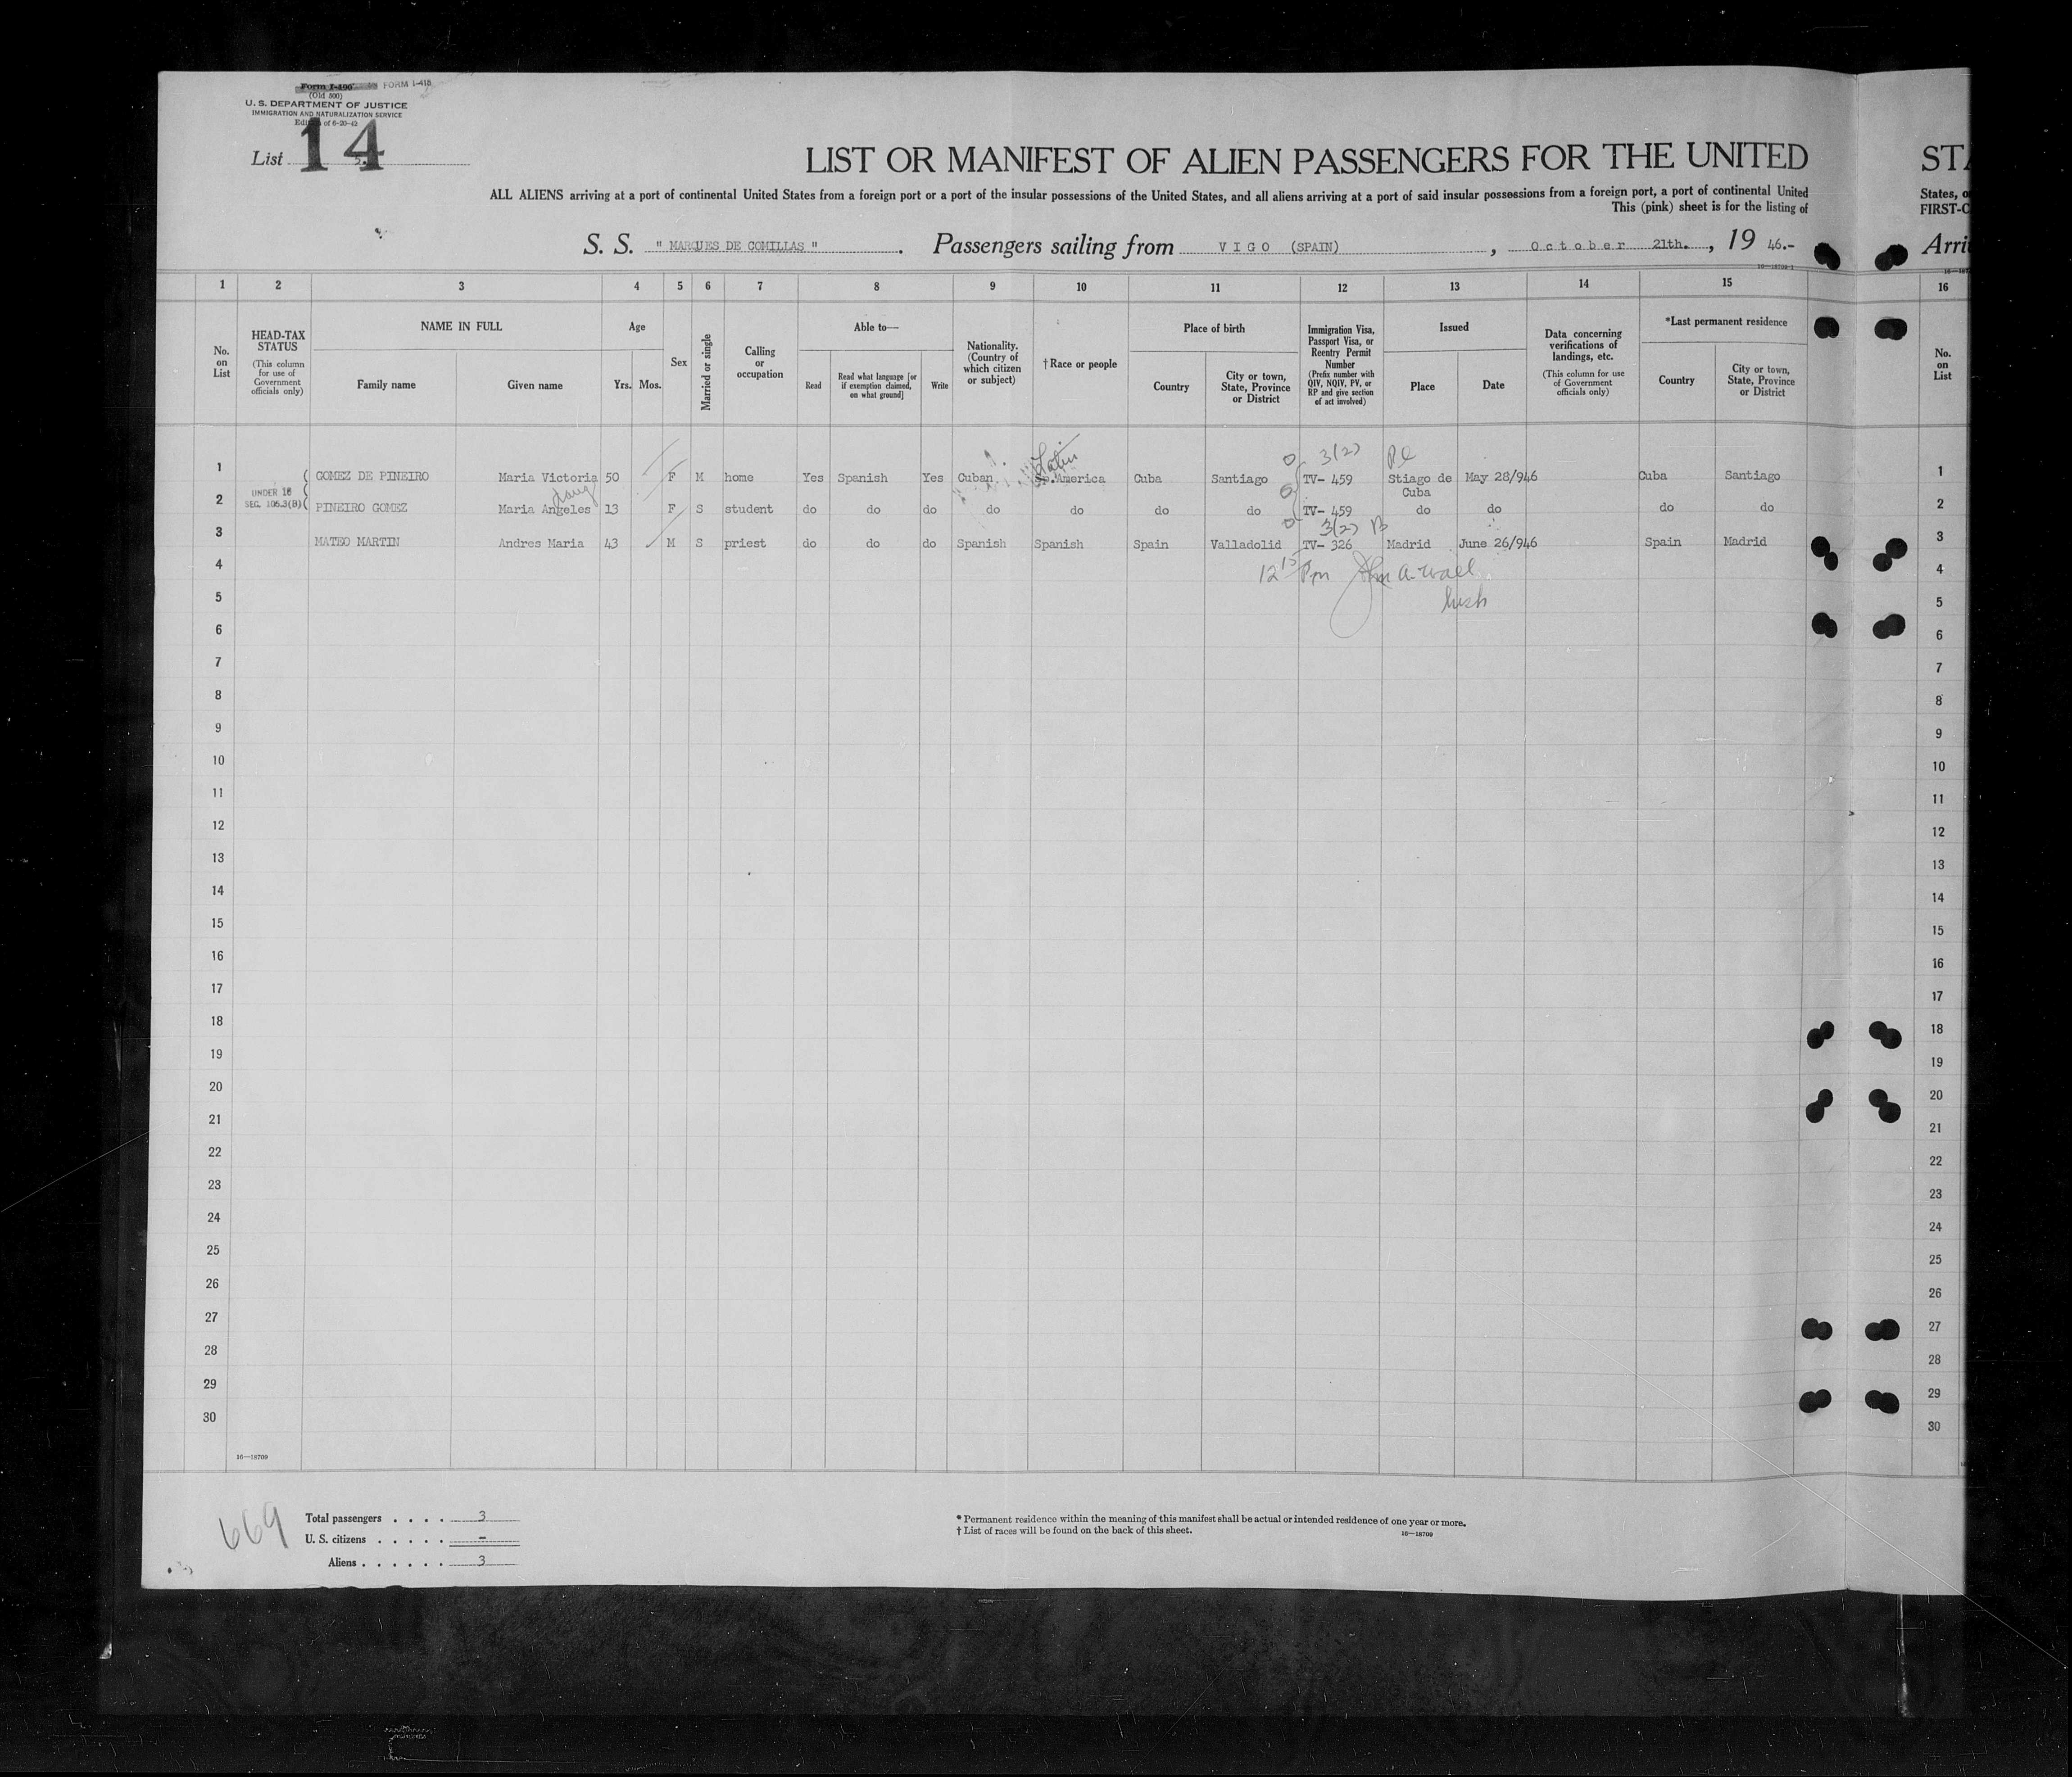 Form I-490 FORM I-415
(Old 500)
U. S. DEPARTMENT OF JUSTICE
IMMIGRATION AND NATURALIZATION SERVICE
Edition of 6-20-42
List 14
LIST OR MANIFEST OF ALIEN PASSENGERS FOR THE UNITED
ALL ALIENS arriving at a port of continental United States from a foreign port or a port of the insular possessions of the United States, and all aliens arriving at a port of said insular possessions from a foreign port, a port of continental United
This (pink) sheet is for the listing of
S. S. " MARQUES DE COMILLAS ". Passengers sailing from VIGO (SPAIN), October 21th., 19 46.-
16—18709-1
STA
States, o
FIRST-C
Arri
1 2 3 4 5 6 7 8 9 10 11 12 13 14 15 16
No. on List
HEAD-TAX STATUS (This column for use of Government officials only)
NAME IN FULL
Family name Given name
Age
Yrs. Mos.
Sex
Married or single
Calling or occupation
Able to—
Read Read what language [or if exemption claimed, on what ground] Write
Nationality. (Country of which citizen or subject)
† Race or people
Place of birth
Country City or town, State, Province or District
Immigration Visa, Passport Visa, or Reentry Permit Number (Prefix number with QIV, NQIV, PV, or RP and give section of act involved)
Issued
Place Date
Data concerning verifications of landings, etc. (This column for use of Government officials only)
*Last permanent residence
Country City or town, State, Province or District
No. on List
Latin 3(2)
1 GOMEZ DE PINEIRO Maria Victoria 50 F M home Yes Spanish Yes Cuban So.America Cuba Santiago TV- 459 Stiago de Cuba May 28/946 Cuba Santiago 1
UNDER 16
SEC. 105.3(B)
daug
2 PINEIRO GOMEZ Maria Angeles 13 F S student do do do do do do do TV- 459 do do do do 2
3(2)
3 MATEO MARTIN Andres Maria 43 M S priest do do do Spanish Spanish Spain Valladolid TV- 326 Madrid June 26/946 Spain Madrid 3
12 15 Pm John A. Wall
Insp
4 4
5 5
6 6
7 7
8 8
9 9
10 10
11 11
12 12
13 13
14 14
15 15
16 16
17 17
18 18
19 19
20 20
21 21
22 22
23 23
24 24
25 25
26 26
27 27
28 28
29 29
30 30
16—18709
669
Total passengers . . . . 3
U. S. citizens . . . . . -
Aliens . . . . . . 3
* Permanent residence within the meaning of this manifest shall be actual or intended residence of one year or more.
† List of races will be found on the back of this sheet.
16—18709